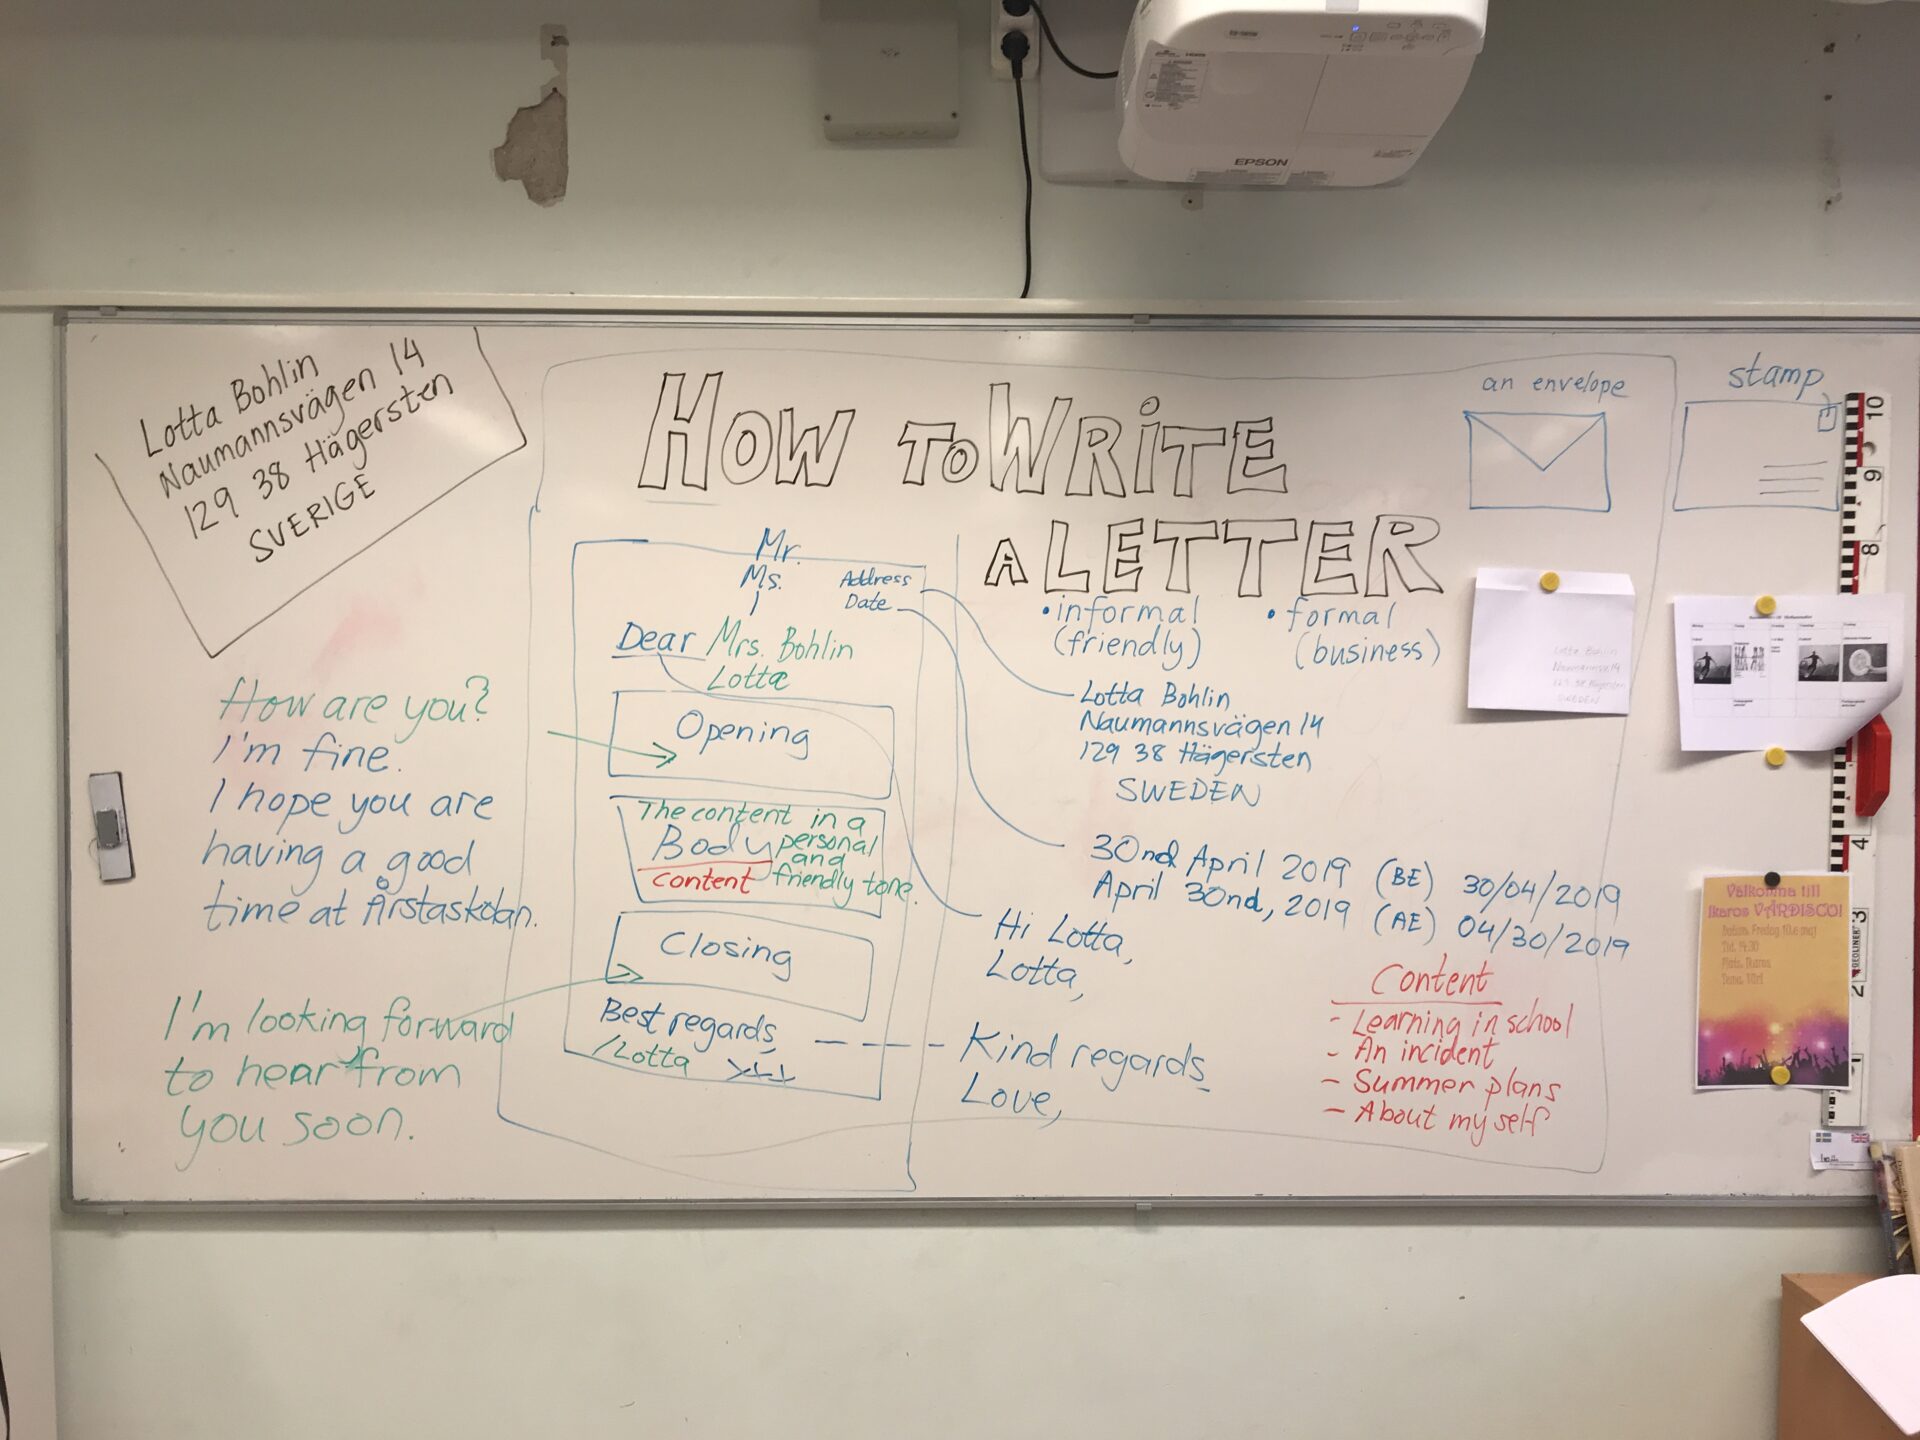 EPSON
Lotta Bohlin
Naumannsvägen 14
129 38 Hägersten
SVERIGE
HOW TO WRiTE
A LETTER
• informal
(friendly)
• formal
(business)
an envelope
stamp
Mr.
Ms.
Address
Date
Dear Mrs. Bohlin
Lotta
Opening
The content in a
personal
and
friendly tone.
Body
content
Closing
Best regards,
/Lotta
How are you?
I'm fine.
I hope you are
having a good
time at Årstaskolan.
I'm looking forward
to hear from
you soon.
Lotta Bohlin
Naumannsvägen 14
129 38 Hägersten
SWEDEN
30nd April 2019 (BE) 30/04/2019
April 30nd, 2019 (AE) 04/30/2019
Hi Lotta,
Lotta,
Kind regards,
Love,
Content
- Learning in school
- An incident
- Summer plans
- About my self
Lotta Bohlin
SWEDEN
Välkomna till
Ikaros VÅRDISCO!
Datum: Fredag 10:e maj
Tid: 14:30
Plats: Ikaros
10
9
8
4
3
2
1
GEOLINER